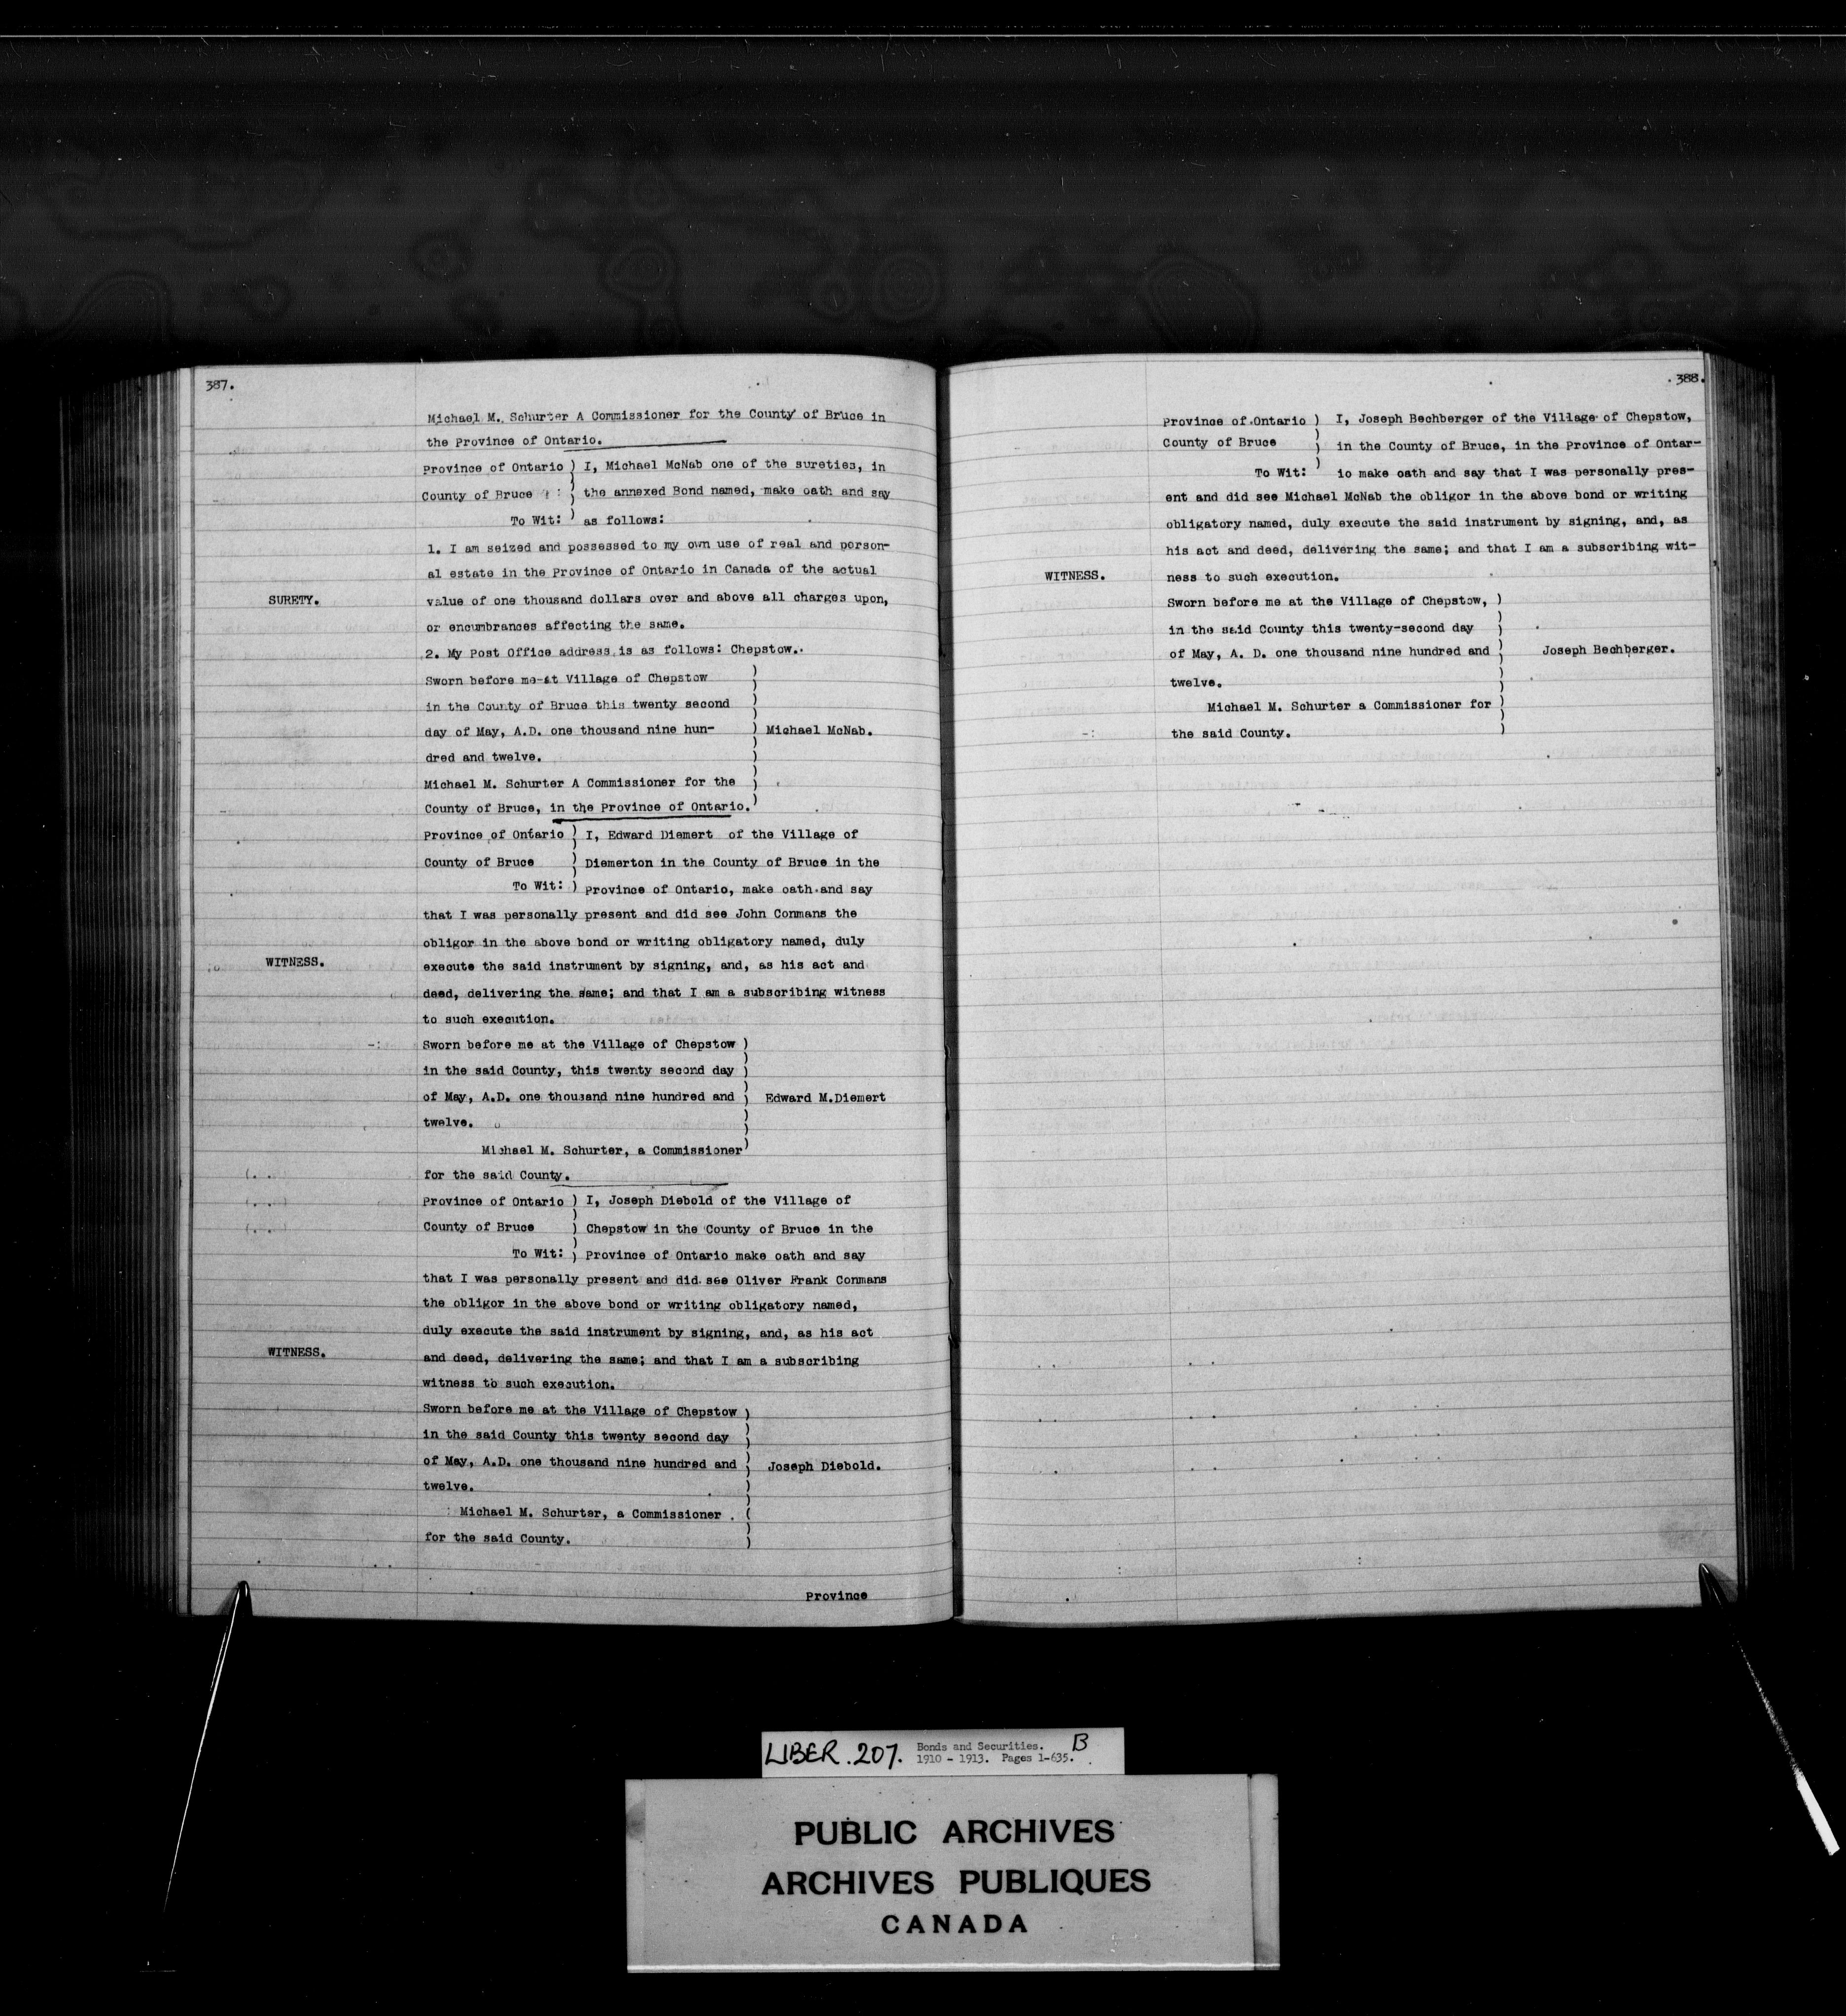 387.
Michael M. Schurter A Commissioner for the County of Bruce in
the Province of Ontario.
Province of Ontario ) I, Michael McNab one of the sureties, in
County of Bruce ) the annexed Bond named, make oath and say
To Wit: ) as follows:
1. I am seized and possessed to my own use of real and person-
al estate in the Province of Ontario in Canada of the actual
SURETY.
value of one thousand dollars over and above all charges upon,
or encumbrances affecting the same.
2. My Post Office address is as follows: Chepstow.
Sworn before me at Village of Chepstow )
in the County of Bruce this twenty second )
day of May, A.D. one thousand nine hun- ) Michael McNab.
dred and twelve. )
Michael M. Schurter A Commissioner for the )
County of Bruce, in the Province of Ontario.)
Province of Ontario ) I, Edward Diemert of the Village of
County of Bruce ) Diemerton in the County of Bruce in the
To Wit: ) Province of Ontario, make oath and say
that I was personally present and did see John Conmans the
obligor in the above bond or writing obligatory named, duly
WITNESS.
execute the said instrument by signing, and, as his act and
deed, delivering the same; and that I am a subscribing witness
to such execution.
Sworn before me at the Village of Chepstow )
in the said County, this twenty second day )
of May, A.D. one thousand nine hundred and ) Edward M.Diemert
twelve. )
Michael M. Schurter, a Commissioner)
for the said County.
Province of Ontario ) I, Joseph Diebold of the Village of
County of Bruce ) Chepstow in the County of Bruce in the
To Wit: ) Province of Ontario make oath and say
that I was personally present and did see Oliver Frank Conmans
the obligor in the above bond or writing obligatory named,
duly execute the said instrument by signing, and, as his act
WITNESS.
and deed, delivering the same; and that I am a subscribing
witness to such execution.
Sworn before me at the Village of Chepstow )
in the said County this twenty second day )
of May, A.D. one thousand nine hundred and ) Joseph Diebold.
twelve. )
Michael M. Schurter, a Commissioner . (
for the said County. )
Province
388.
Province of Ontario ) I, Joseph Bechberger of the Village of Chepstow,
County of Bruce ) in the County of Bruce, in the Province of Ontar-
To Wit: ) io make oath and say that I was personally pres-
ent and did see Michael McNab the obligor in the above bond or writing
obligatory named, duly execute the said instrument by signing, and, as
his act and deed, delivering the same; and that I am a subscribing wit-
WITNESS.
ness to such execution.
Sworn before me at the Village of Chepstow, )
in the said County this twenty-second day )
of May, A. D. one thousand nine hundred and ) Joseph Bechberger.
twelve. )
Michael M. Schurter a Commissioner for )
the said County. )
LIBER.207. Bonds and Securities. B
1910 - 1913. Pages 1-635.
PUBLIC ARCHIVES
ARCHIVES PUBLIQUES
CANADA